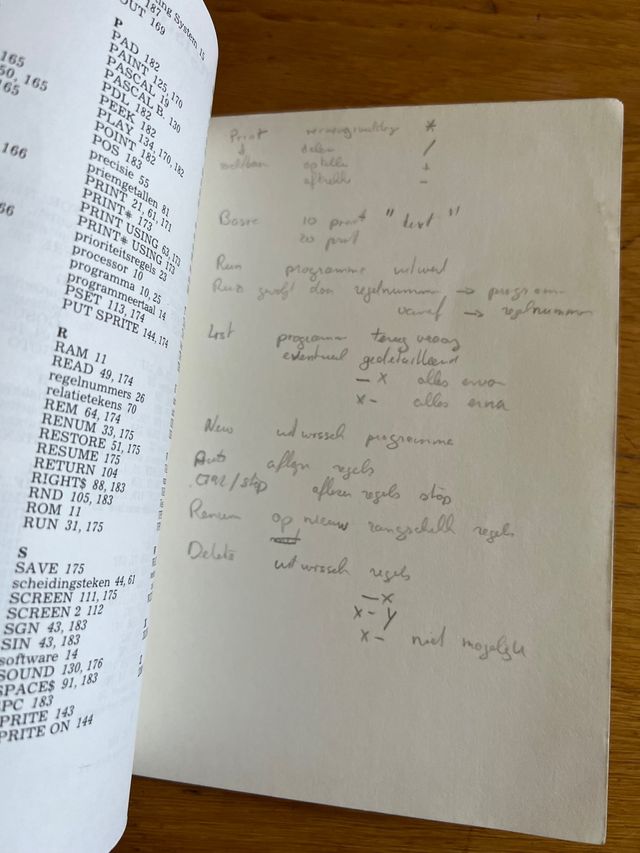 ing System 15
187
OUT 169
165
50, 165
165
166
66
P
PAD 182
PAINT 125, 170
PASCAL 19
PASCAL B. 130
PDL 182
PEEK 182
PLAY 134, 170, 182
POINT 182
POS 183
precisie 55
priemgetallen 81
PRINT 21, 61, 171
PRINT# 173
PRINT USING 63, 173
PRINT# USING 173
prioriteitsregels 23
processor 10
programma 10, 25
programmeertaal 14
PSET 113, 174
PUT SPRITE 144, 174
R
RAM 11
READ 49, 174
regelnummers 26
relatietekens 70
REM 64, 174
RENUM 33, 175
RESTORE 51, 175
RESUME 175
RETURN 104
RIGHT$ 88, 183
RND 105, 183
ROM 11
RUN 31, 175
S
SAVE 175
scheidingsteken 44, 61
SCREEN 111, 175
SCREEN 2 112
SGN 43, 183
SIN 43, 183
software 14
SOUND 130, 176
SPACE$ 91, 183
SPC 183
SPRITE 143
SPRITE ON 144
Print *
↓ delen /
optellen +
aftrekk -
Basic 10 print "text"
20 print
Run programma uitwerk
Run gevolgt door regelnummer → programm
vanaf → regelnummer
List programm terug vraag
eventueel gedetailleerd
— x alles ervoor
x - alles erna
New uitwissch programma
Auto regels
Ctrl/stop regels stop
Renum op nieuw rangschikk regels
Delete uitwissch regels
— x
x - y
x - niet mogelijk